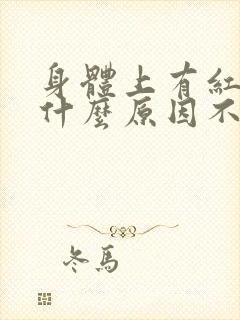 身體上有紅
什麼原因不
冬馬